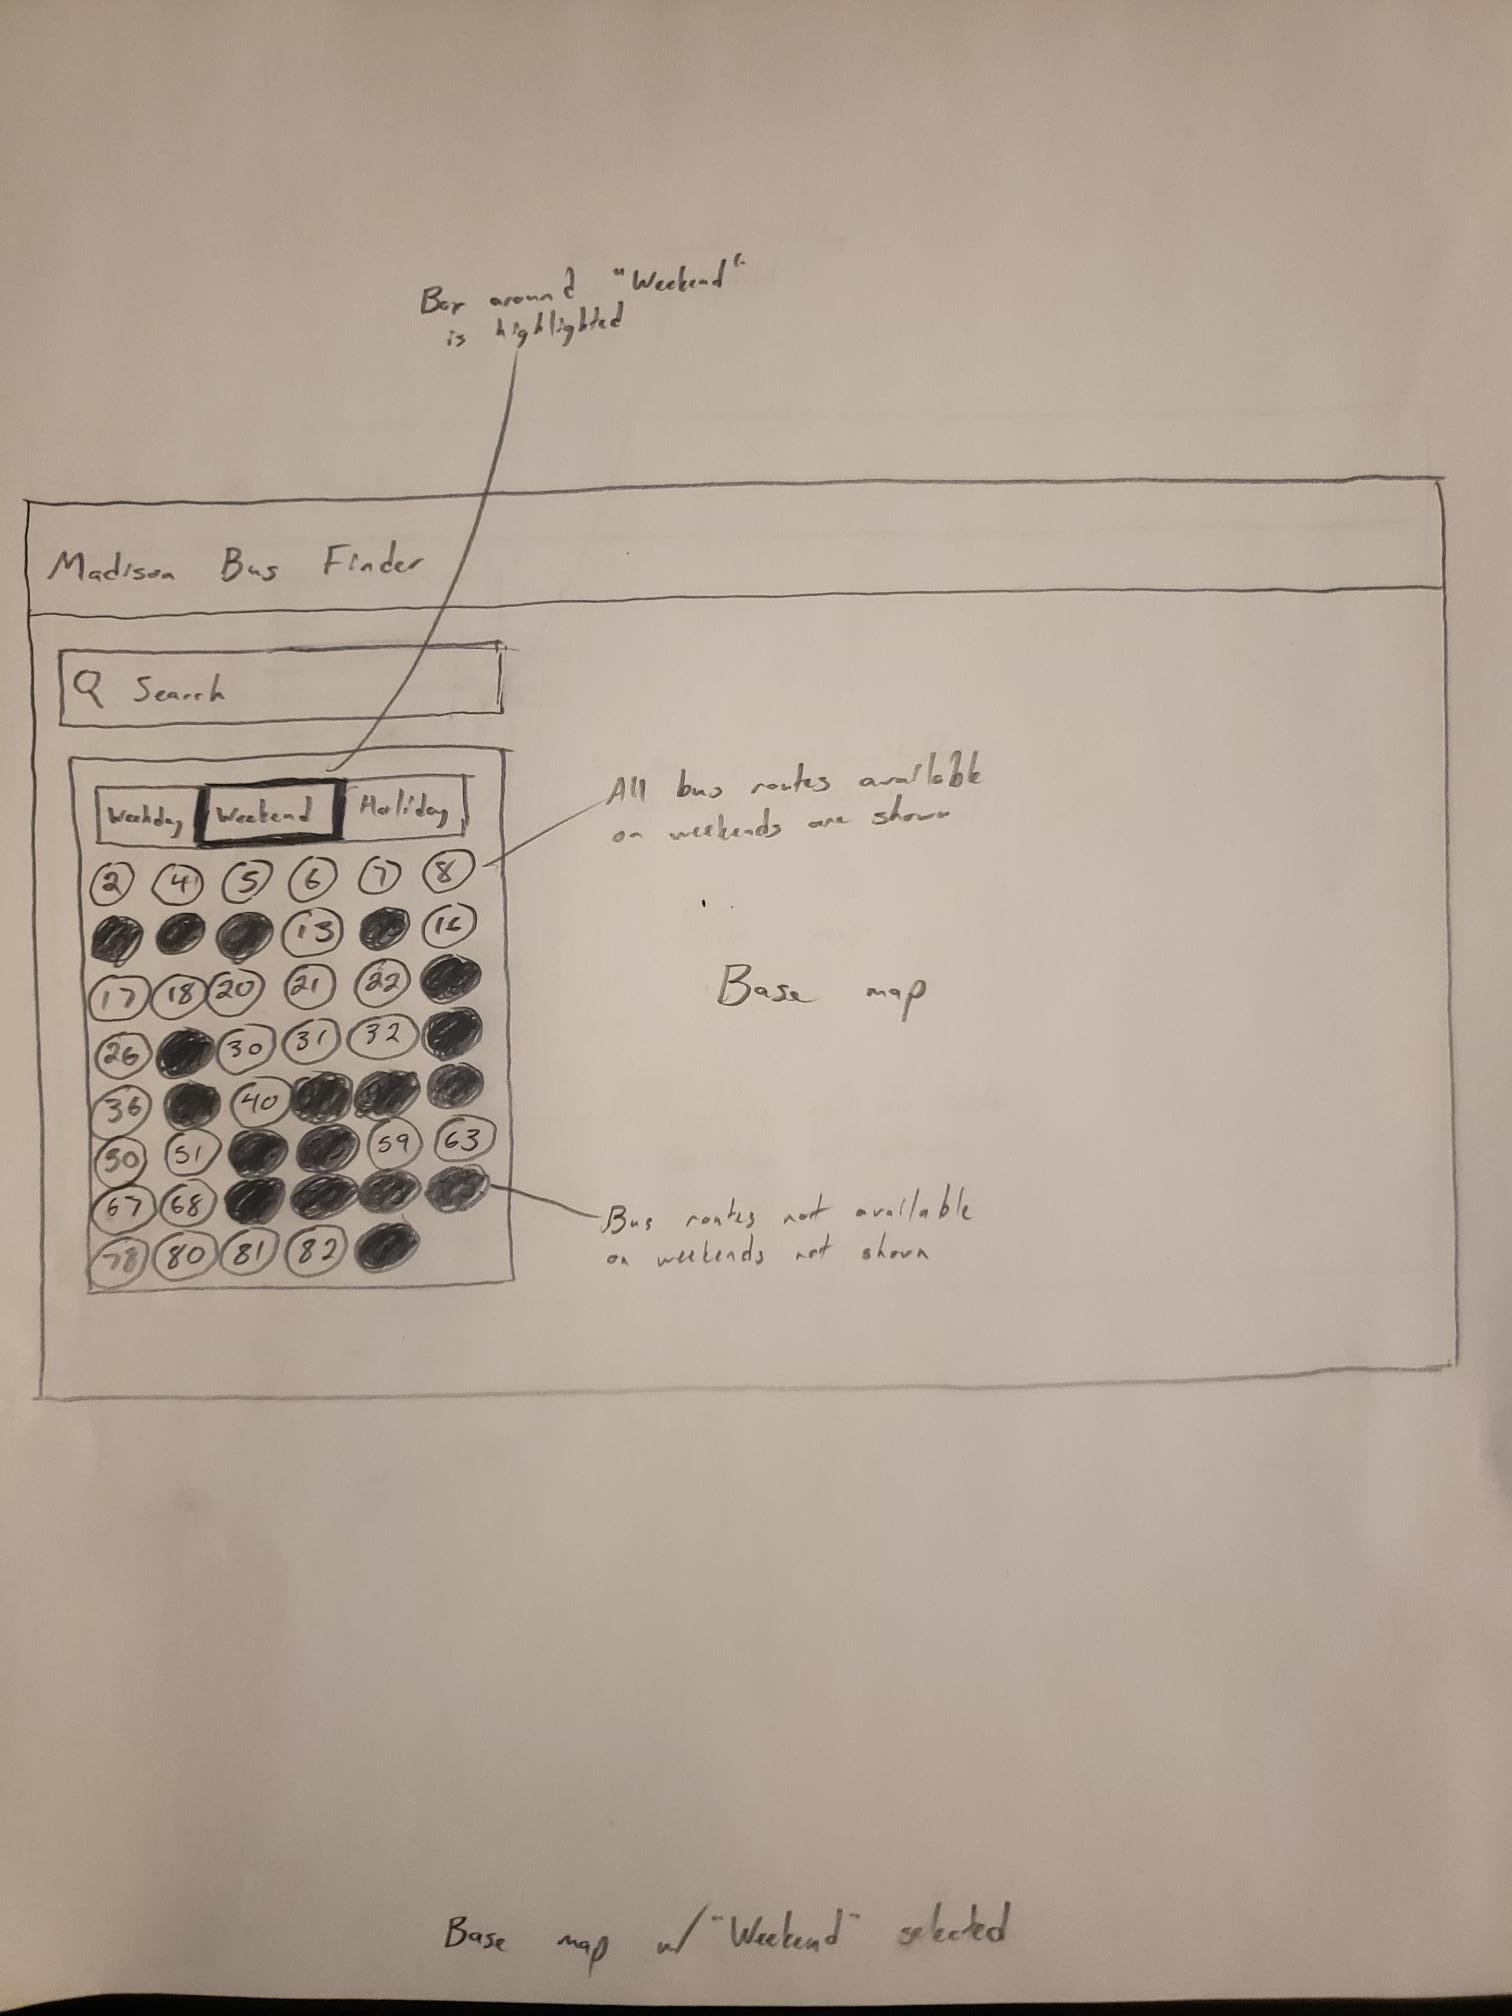 Box around "Weekend"
is highlighted
Madison Bus Finder
Search
Weekday Weekend Holiday
2 4 5 6 7 8
13 16
17 18 20 21 22
26 30 31 32
36 40
50 51 59 63
67 68
78 80 81 82
All bus routes available
on weekends are shown
Base map
Bus routes not available
on weekends not shown
Base map w/ "Weekend" selected